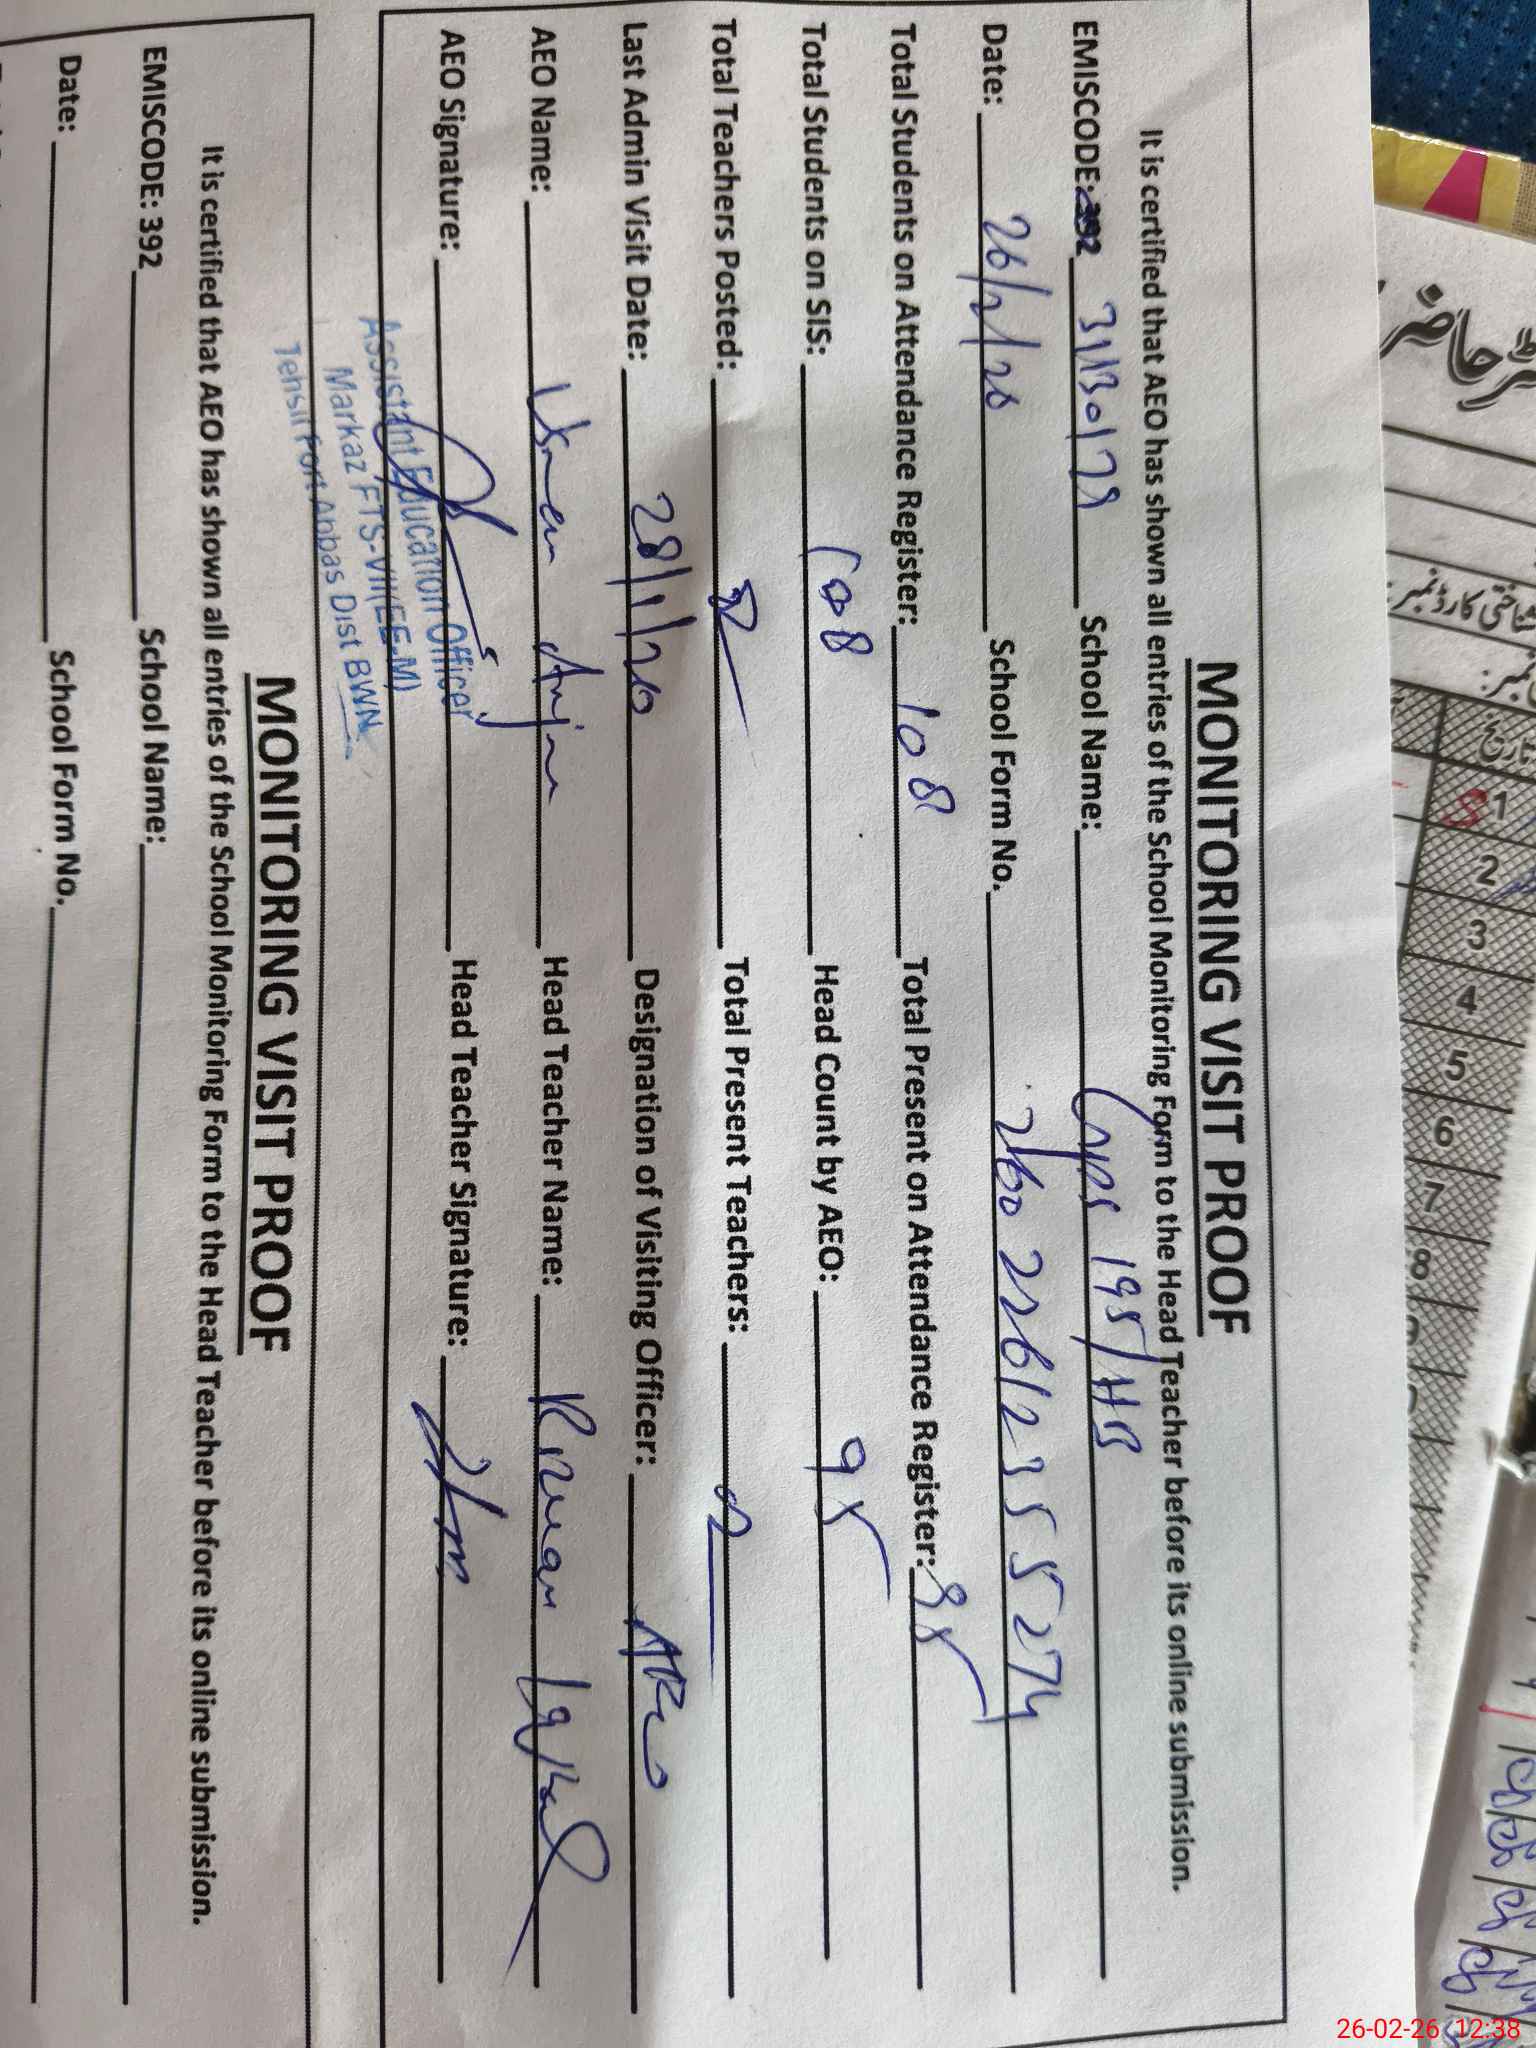 MONITORING VISIT PROOF
It is certified that AEO has shown all entries of the School Monitoring Form to the Head Teacher before its online submission.
EMISCODE: 392 31130179 School Name: GPS 195/HB
Date: 26/2/26 School Form No. 26022612355274
Total Students on Attendance Register: 108 Total Present on Attendance Register: 95
Total Students on SIS: 108 Head Count by AEO: 95
Total Teachers Posted: Total Present Teachers:
Last Admin Visit Date: 28/1/26 Designation of Visiting Officer: AEO
AEO Name: Usman Anjum Head Teacher Name: Rizwan Iqbal
AEO Signature: Head Teacher Signature:
Assistant Education Officer
Markaz FTS-VII(EE-M)
Tehsil Fort Abbas Dist BWN
MONITORING VISIT PROOF
It is certified that AEO has shown all entries of the School Monitoring Form to the Head Teacher before its online submission.
EMISCODE: 392 School Name:
Date: School Form No.
1
2
3
4
5
6
7
8
26-02-26 12:38